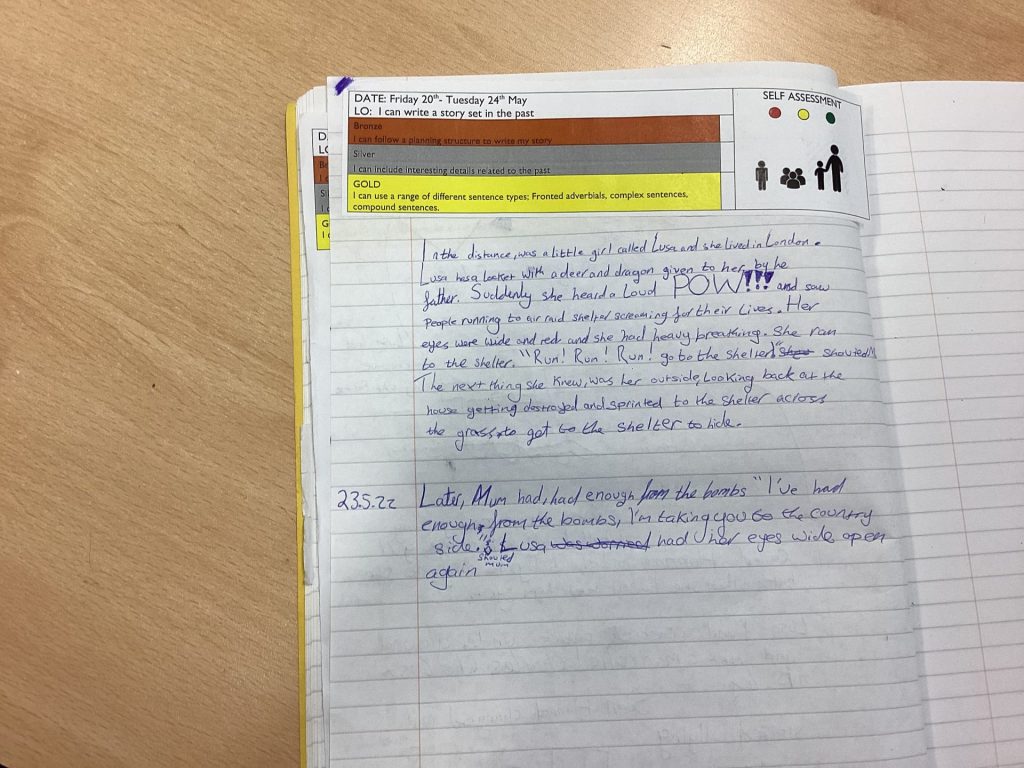 DATE: Friday 20th- Tuesday 24th May
LO: I can write a story set in the past
Bronze
I can follow a planning structure to write my story
Silver
I can include interesting details related to the past
GOLD
I can use a range of different sentence types; Fronted adverbials, complex sentences,
compound sentences.
SELF ASSESSMENT
In the distance, was a little girl called Lusa and she lived in London.
Lusa has a locket with a deer and dragon given to her by he
father. Suddenly she heard a Loud POW!!! and saw
People running to air raid shelter screaming for their Lives. Her
eyes were wide and red and she had heavy breathing. She ran
to the shelter. "Run! Run! Run! go to the shelter!" shouted
The next thing she knew, was her outside, Looking back at the
house getting destroyed and sprinted to the shelter across
the grass to get to the shelter to hide.
23.5.22
Later, Mum had, had enough from the bombs "I've had
enough from the bombs, I'm taking you to the country
side." shouted mum Lusa was worried had her eyes wide open
again